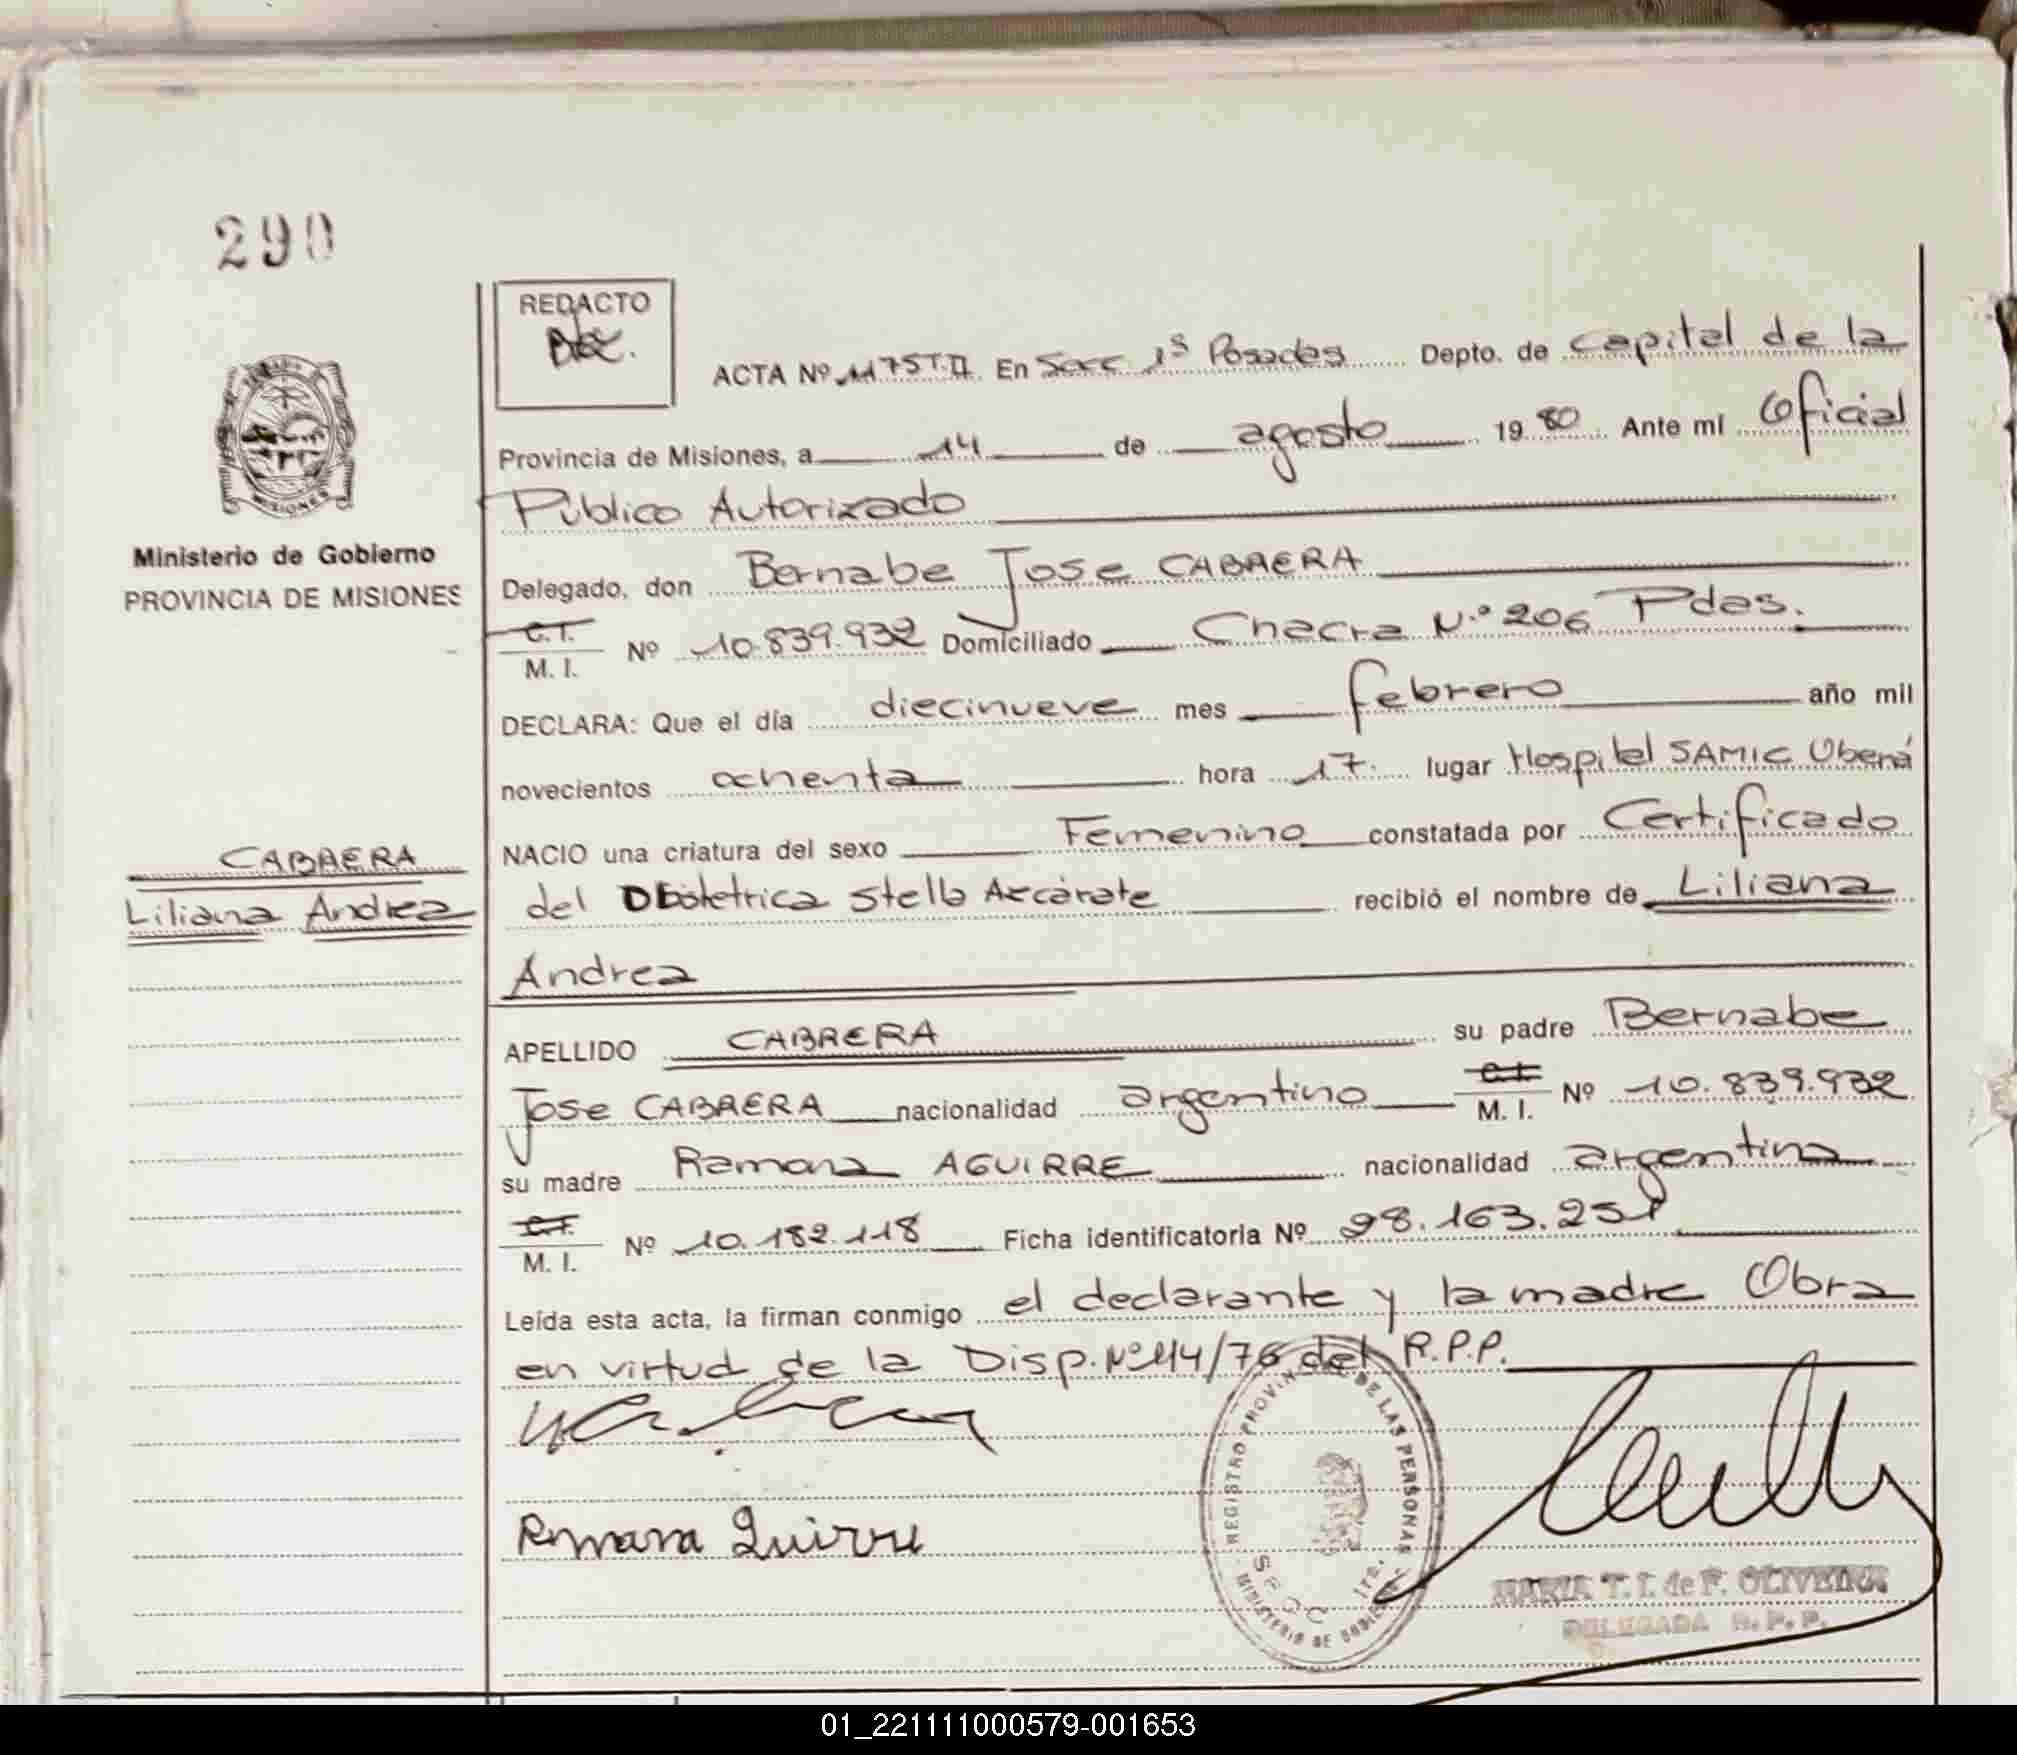 290
REDACTO
ACTA Nº 1175 T.II En Secc 1ª Posadas Depto. de Capital de la
Provincia de Misiones, a 14 de agosto 1980 Ante mí Oficial
Público Autorizado
Ministerio de Gobierno
PROVINCIA DE MISIONES
Delegado, don Bernabe Jose CABRERA
C.I.
M. I. Nº 10.839.932 Domiciliado Chacra N.º 206 Pdas.
DECLARA: Que el día diecinueve mes febrero año mil
novecientos ochenta hora 17. lugar Hospital SAMIC Oberá
NACIO una criatura del sexo Femenino constatada por Certificado
CABRERA
Liliana Andrea
del Obstetrica Stella Azcárate recibió el nombre de Liliana
Andrea
APELLIDO CABRERA su padre Bernabe
Jose CABRERA nacionalidad argentino C.I. M. I. Nº 10.839.932
su madre Ramona AGUIRRE nacionalidad argentina
C.I.
M. I. Nº 10.182.118 Ficha identificatoria Nº 98.163.251
Leída esta acta, la firman conmigo el declarante y la madre Obra
en virtud de la Disp. Nº 414/76 del R.P.P.
REGISTRO PROVINCIAL DE LAS PERSONAS
SECC 1ra.
MINISTERIO DE GOBIERNO
MARIA T. I. de F. OLIVEIRA
DELEGADA R. P. P.
01_221111000579-001653